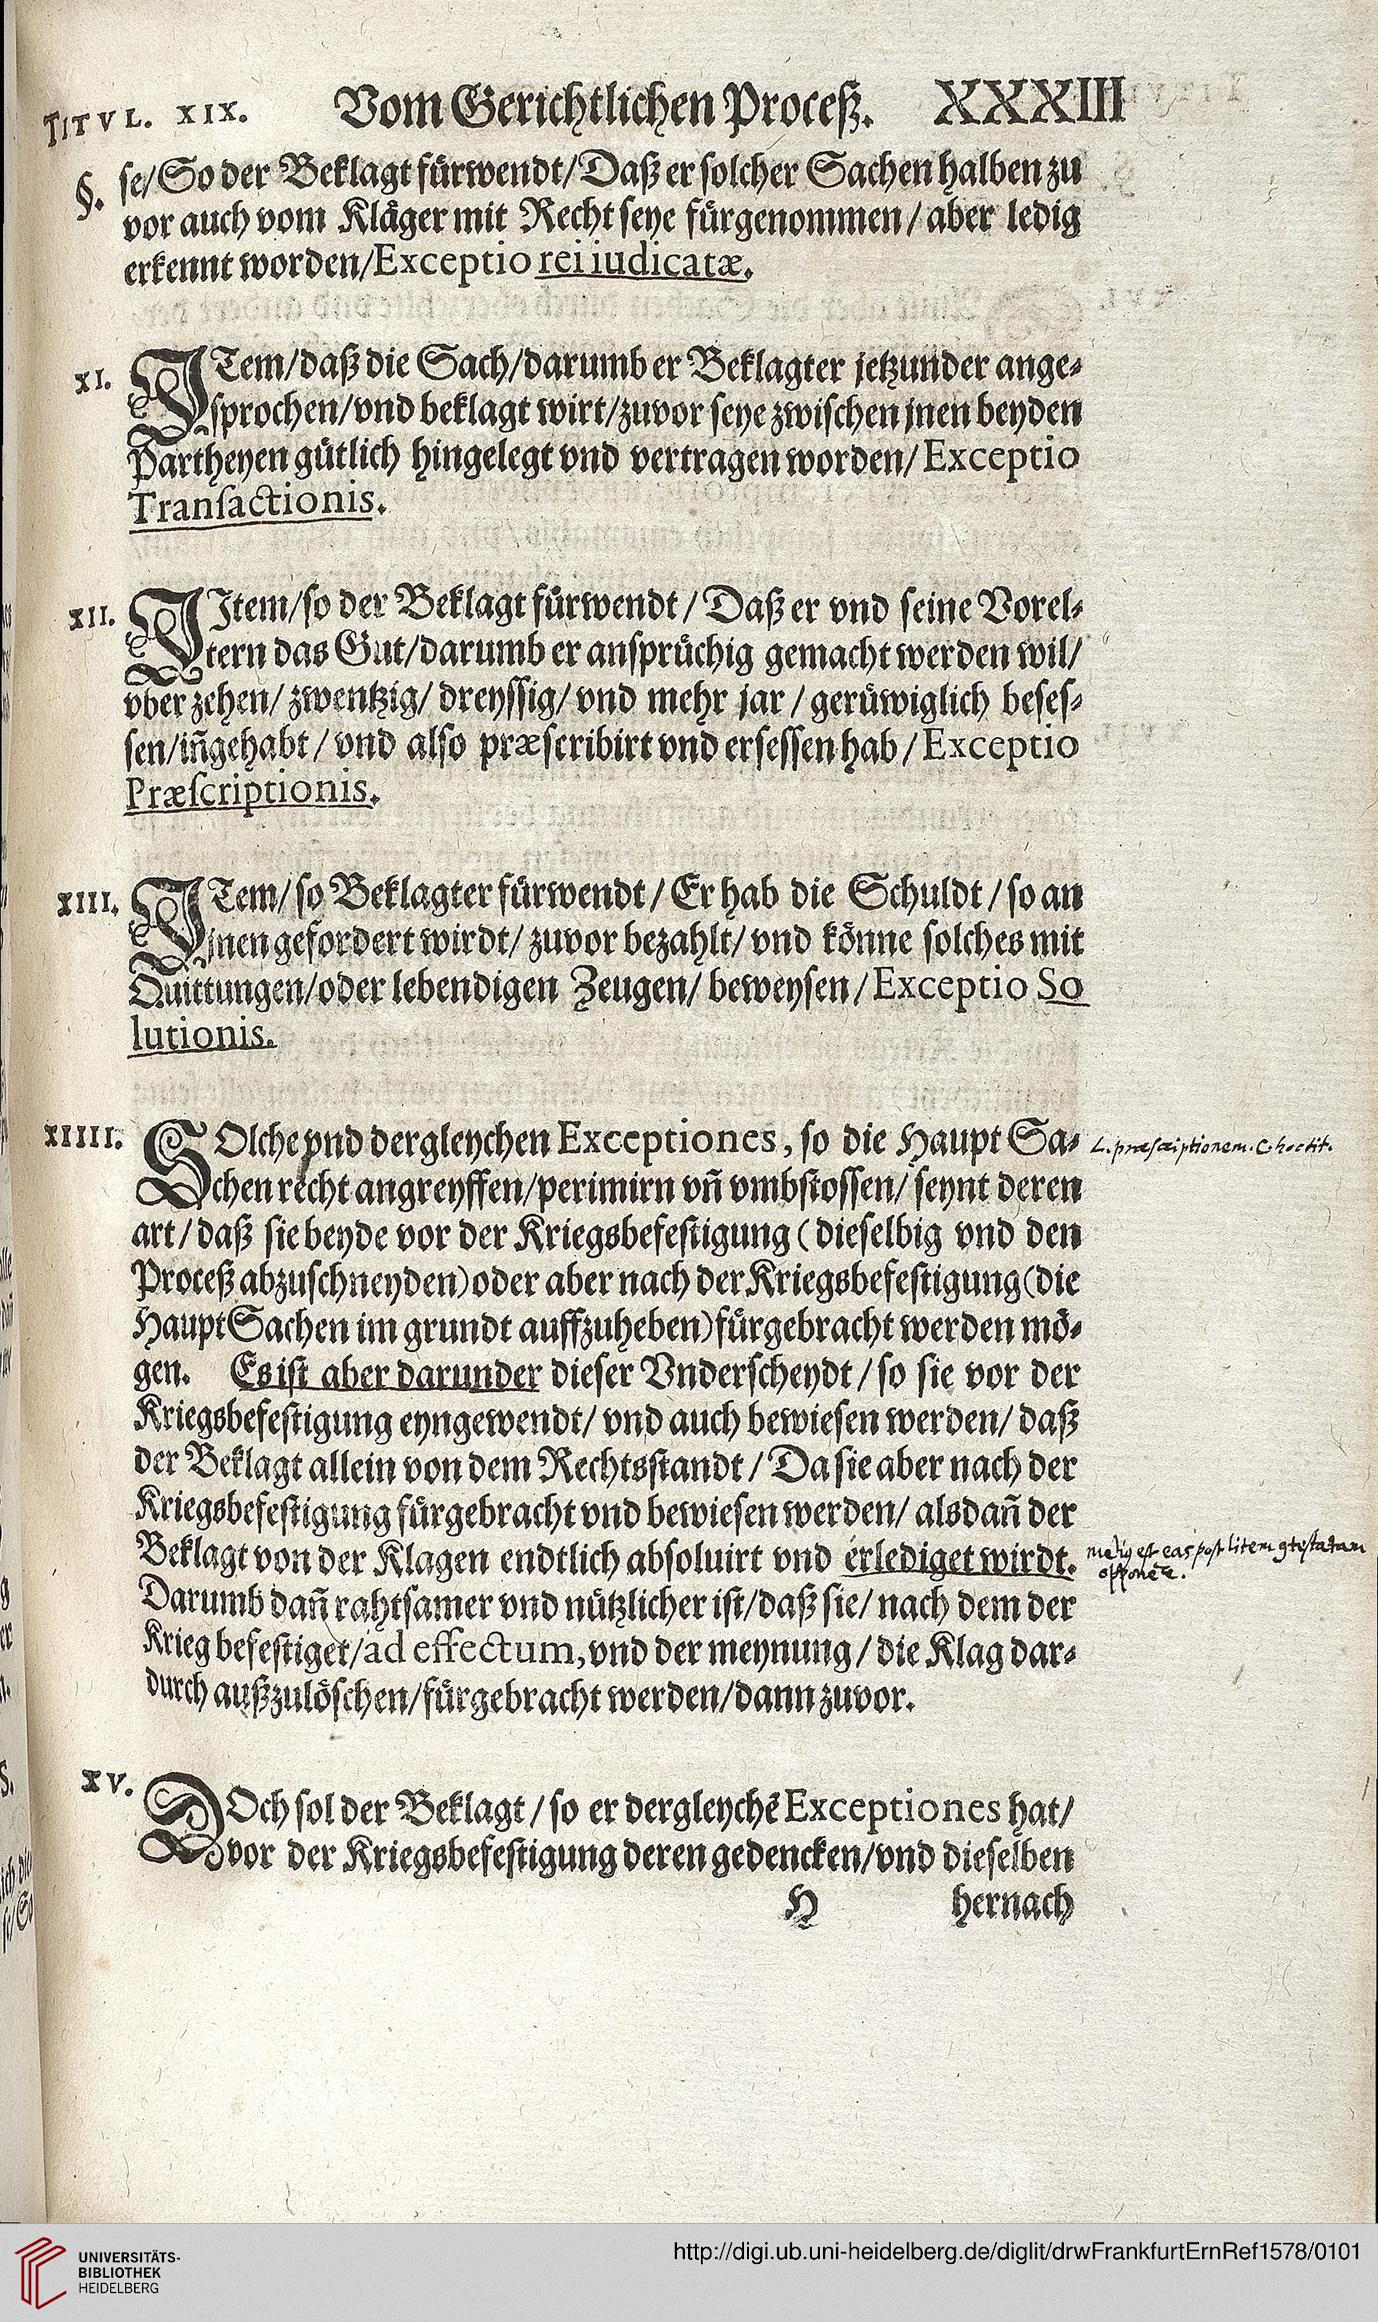 TITVL. XIX. Vom Gerichtlichen Proceß. XXXIII
§. se/So der Beklagt fürwendt/Daß er solcher Sachen halben zu
vor auch vom Kläger mit Recht seye fürgenommen / aber ledig
erkennt worden/Exceptio rei iudicatæ.
XI. ITem/daß die Sach/darumb er Beklagter jetzunder ange-
sprochen/vnd beklagt wirt/zuvor seye zwischen jnen beyden
Partheyen gütlich hingelegt vnd vertragen worden/Exceptio
Tranſactionis.
XII. IItem/so der Beklagt fürwendt / Daß er vnd seine Vorel-
tern das Gut/darumb er ansprüchig gemacht werden wil/
vber zehen/ zwentzig/ dreyssig/ vnd mehr jar / gerüwiglich beses-
sen/iñgehabt / vnd also præscribirt vnd ersessen hab / Exceptio
Præſcriptionis.
XIII. ITem/ so Beklagter fürwendt / Er hab die Schuldt / so an
jnen gefordert wirdt/ zuvor bezahlt/ vnd könne solches mit
Quittungen/oder lebendigen Zeugen/ beweysen / Exceptio So
lutionis.
XIIII. SOlche vnd dergleychen Exceptiones, so die Haupt Sa-
L. præscriptionem. C. hoc tit.
chen recht angreyffen/perimirn vñ vmbstossen/ seynt deren
art / daß sie beyde vor der Kriegsbefestigung ( dieselbig vnd den
Proceß abzuschneyden) oder aber nach der Kriegsbefestigung (die
Haupt Sachen im grundt auffzuheben) fürgebracht werden mö-
gen. Es ist aber darunder dieser Vnderscheydt / so sie vor der
Kriegsbefestigung eyngewendt/ vnd auch bewiesen werden/ daß
der Beklagt allein von dem Rechtsstandt / Da sie aber nach der
Kriegsbefestigung fürgebracht vnd bewiesen werden/ alsdañ der
Beklagt von der Klagen endtlich absoluirt vnd erlediget wirdt.
est eas post litem
Darumb dañ rahtsamer vnd nützlicher ist/daß sie/ nach dem der
Krieg befestiget/ad effectum, vnd der meynung / die Klag dar-
durch außzulöschen/fürgebracht werden/dann zuvor.
XV. DOch sol der Beklagt / so er dergleychē Exceptiones hat/
vor der Kriegsbefestigung deren gedencken/vnd dieselben
H hernach
UNIVERSITÄTS-
BIBLIOTHEK
HEIDELBERG
http://digi.ub.uni-heidelberg.de/diglit/drwFrankfurtErnRef1578/0101